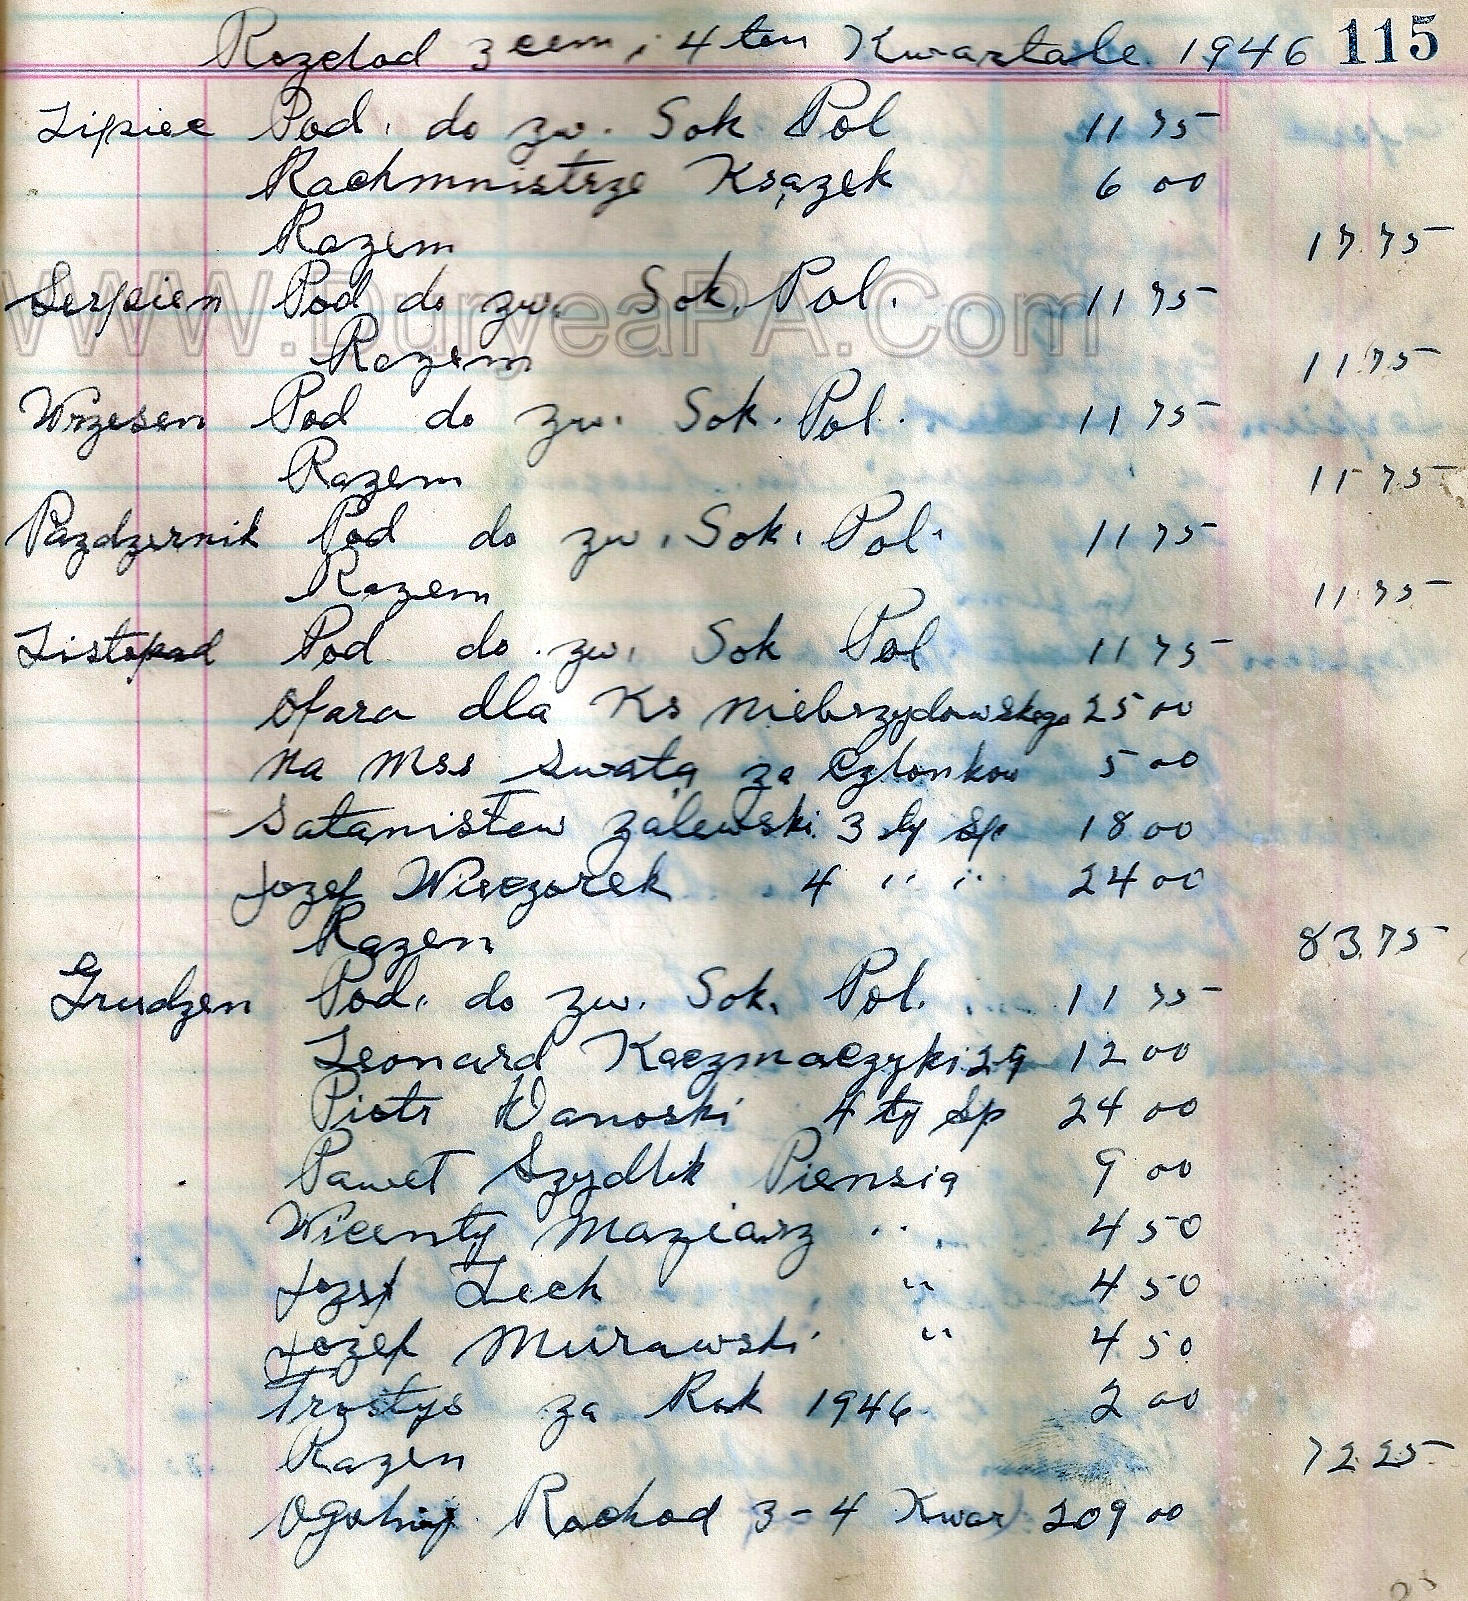 Rozchod 3 cem i 4 tem Kwartale 1946 115
Lipiec Pod. do zw. Sok Pol 11 75
Rachmnistrze Ksązek 6 00
Razem 17.75
Serpien Pod do zw. Sok. Pol. 11 75
WWW.DuryeaPA.Com
Razem 11.75
Wrzesen Pod do zw. Sok. Pol. 11 75
Razem 11 75
Pazdzernik Pod do zw. Sok. Pol. 11 75
Razem 11.75
Listopad Pod do zw. Sok Pol 11 75
Ofara dla Ks Niebrzydowskego 25 00
Na Mss Swatą za Członkow 5 00
Satanisław Zalewski 3 ty Sp 18 00
Jozef Wieczorek 4 " " 24 00
Razen 83.75
Grudzen Pod. do zw. Sok. Pol. 11 75
Leonard Kaczmaczyki 29 12 00
Piotr Wanoski 4 ty Sp 24 00
Paweł Szydlik Piensia 9 00
Wicenty Maziarz " 4 50
Jozef Lech " 4 50
Jozef Murawski " 4 50
Trostys za Rok 1946 2 00
Razen 72.25
Rochod 3-4 Kwar 209 00